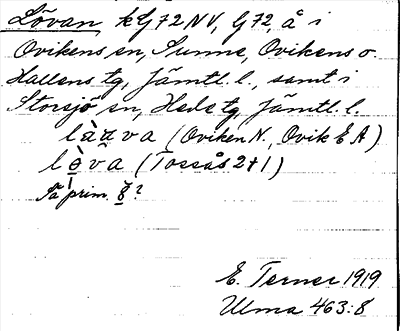 Lövan kG72NV, G72, å i
Ovikens sn, Sunne, Ovikens o.
Hallens tg, Jämtl. l., samt i
Storsjö sn, Hede tg Jämtl. l.
(Oviken N., Ovik E A)
(Tossås 2+1)
På prim. ?
E. Terner 1919
Ulma 463:8